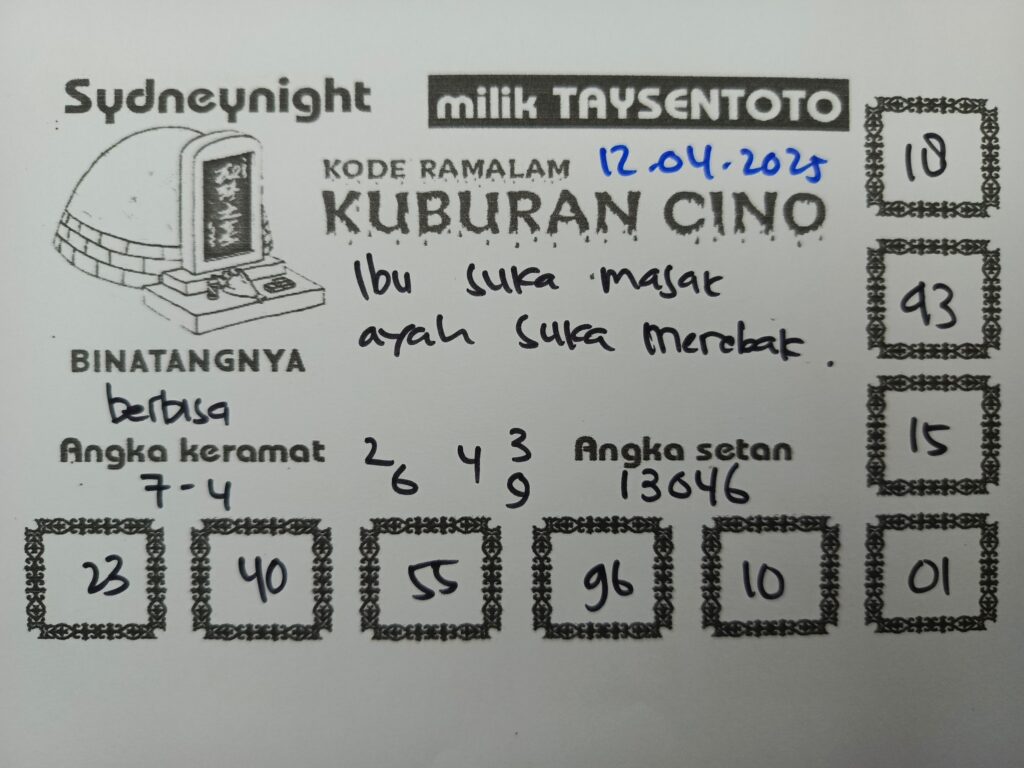 Sydneynight
milik TAYSENTOTO
KODE RAMALAM 12.04.2025
KUBURAN CINO
Ibu suka masak
ayah suka merebak.
BINATANGNYA
berbisa
Angka keramat
7-4
2 4 3
6 9
Angka setan
13046
18
93
15
23 40 55 96 10 01